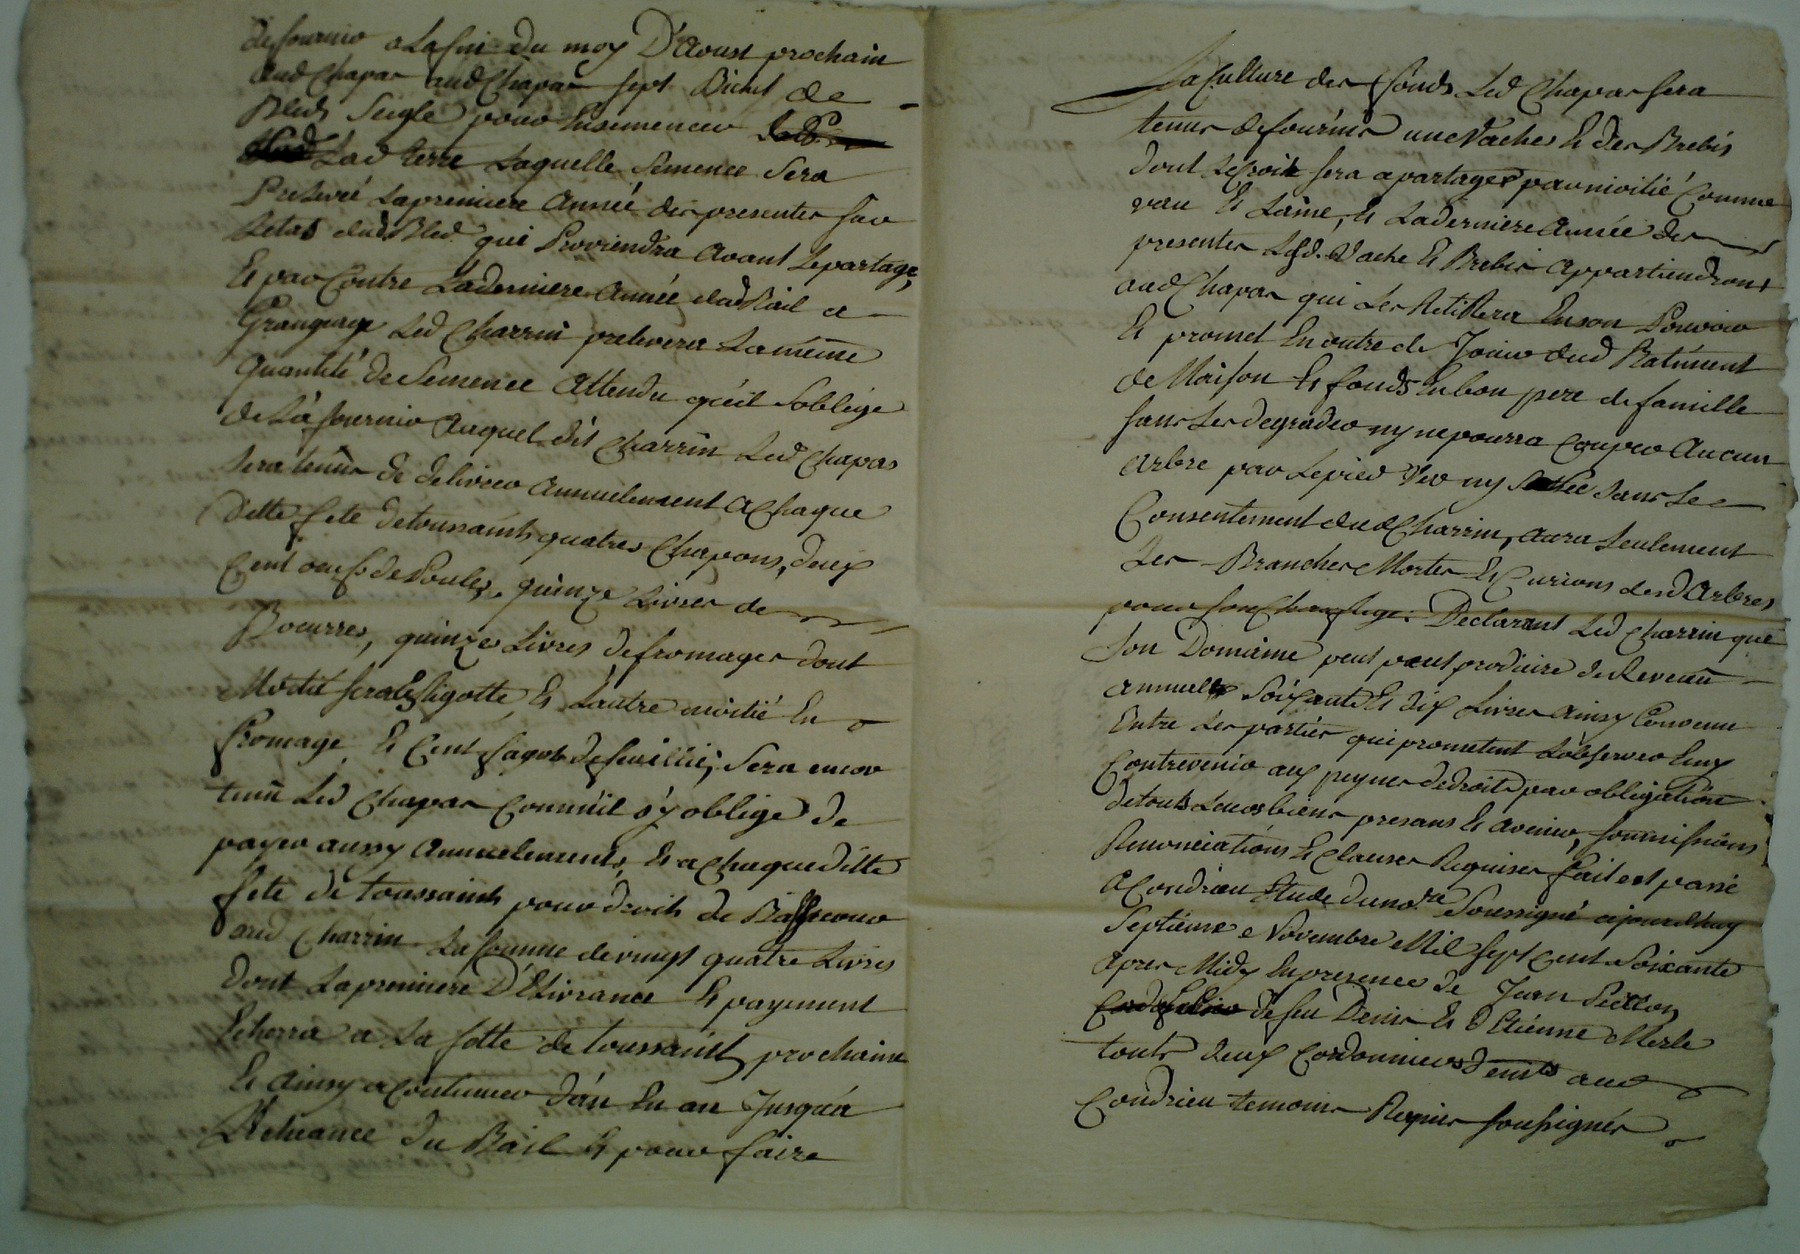 de fournir a La fin du moy D'Aoust prochain
aud Chapas aud Chapas sept Bichet de
Bled Seigle pour Ensemencer
Lad terre Laquelle Semence Sera
Prelevé La premiere Année des presentes sur
Letat dud Bled qui Proviendra Avant Le partage,
Et par Contre La derniere Année dud Bail a
Grangeage Led Charrin prelevera La même
quantité de Semence Attendu qu'il s'oblige
de La fournir Auquel dit Charrin Led Chapas
Sera tenus de delivrer Annuelement a Chaque
ditte fete de toussaints quatres Chapons, deux
Cent oeufs de Poules, quinze Livres de
Boeurres, quinze Livres de fromages dont
Moitié sera En Rigotte Et L'autre moitié En
fromage Et Cent fagots de feuillié; Sera encor
tenu Led Chapas Comm'il s'y oblige de
payer aussy Annuelement, Et a Chaque ditte
fete de toussaints pour droits de Basse cour
aud Charrin La somme de vingt quatre Livres
dont La premiere D'Elivrance Et payement
Echerra a La fette de toussaint prochaine
Et Ainsy a Continuer d'an En an Jusqu'a
L'Echeance du Bail Et pour faire
La Culture des fonds Led Chapas sera
tenus de fournir une Vache Et des Brebis
dont Le Croit sera a partager par moitié Comme
veau Et Laine, Et La derniere Année des
presentes Lesd. Vache Et Brebis Appartiendront
aud Chapas qui Les Retirera En son Pouvoir
Et promet En outre de Jouir dud Batiment
de Maison Et fonds En bon pere de famille
sans Les degrader ny ne pourra Couper Aucun
Arbre par Le pied Ver ny sans Le
Consentement dud Charrin, aura Seulement
Les Branches Mortes Et Curions desd Arbres
pour son Chauffage. Declarant Led Charrin que
Son Domaine peut peut produire de Revenu
annuel Soixante Et dix Livres Ainsy Convenu
Entre Les parties qui prometent L'observer
Contrevenir aux peynes de droits par obligation
de touts Leurs biens presans Et avenir, soumissions
Renonciations Et Clauses Requises fait et passé
a Condrieu Etude du no.re Soussigné ajourdhuy
Septieme Novembre Mil sept Cent Soixante
apres Midy En presence de Jean
de feu Denis Et d'Etienne Merle
touts deux Cordonniers dem.ts aud
Condrieu temoins Requis soussignés